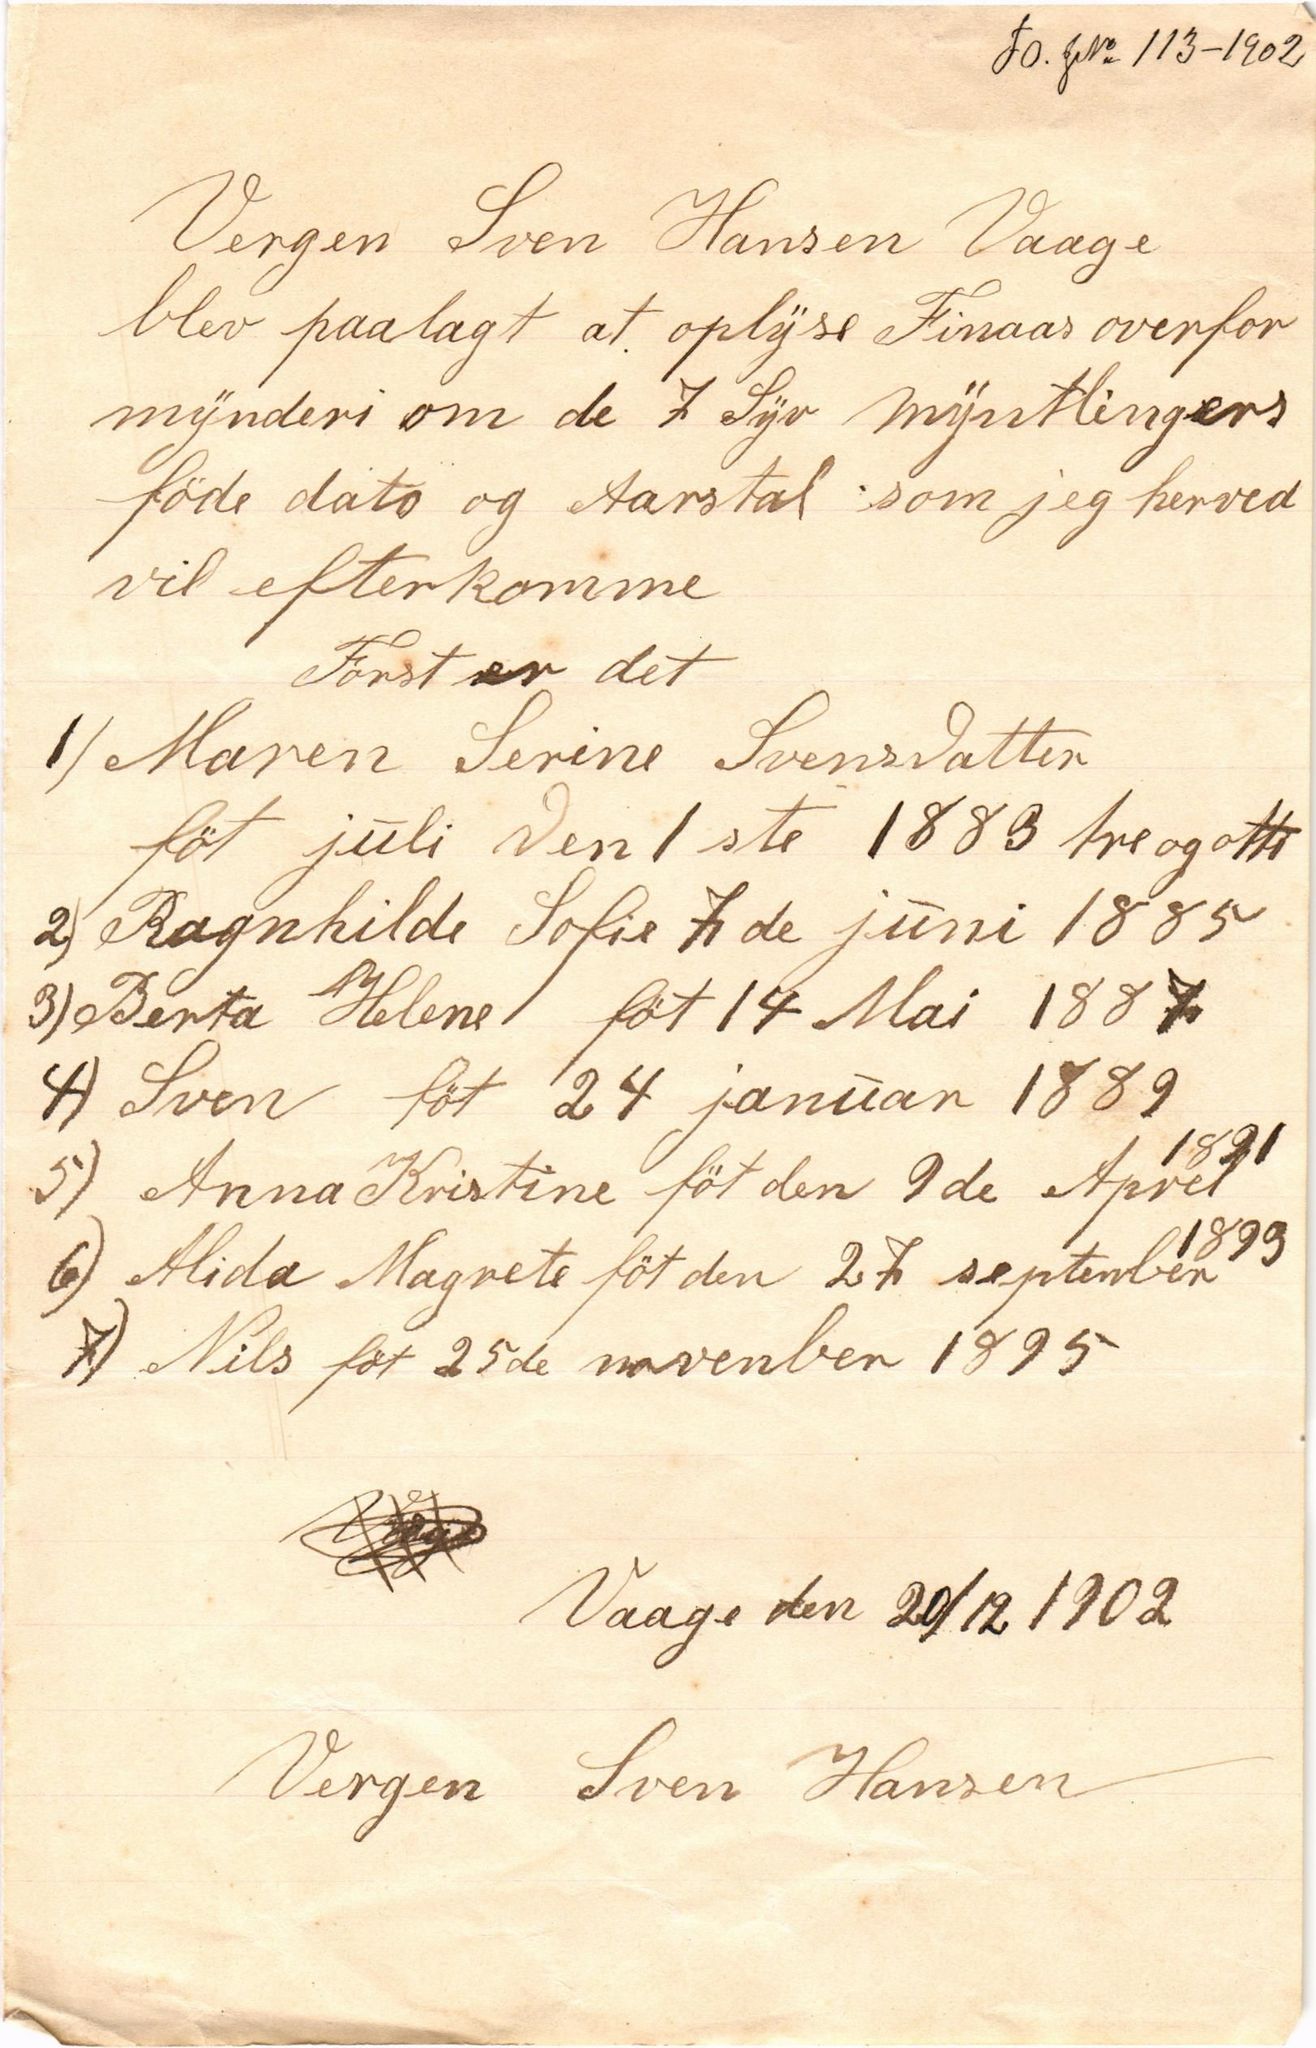 FO. JNo. 113-1902
Vergen Sven Hansen Vaage
blev paalagt at oplÿse Finaas overfor
mÿnderi om de 7 Sÿv Mÿntlingers
föde dato og Aarstal som jeg herved
vil efterkomme
Forst er det
1) Maren Serine Svensdatter
föt juli den 1 ste 1883 tre og otti
2) Ragnhilde Sofie 7 de juni 1885
3) Berta Helene föt 14 Mai 1887
4) Sven föt 24 januar 1889
5) Anna Kristine föt den 9 de Aprel 1891
6) Alida Magrete föt den 27 septenber 1893
7) Nils föt 25 de novenber 1895
Vaage den 20/12 1902
Vergen Sven Hansen